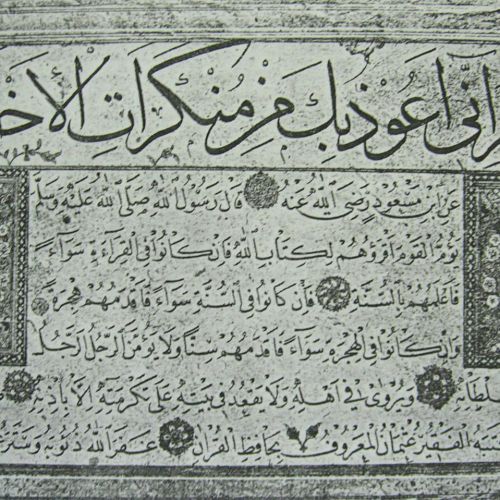 اني اعوذ بك من منكرات الأخ
عن ابن مسعود رضي الله عنه قال رسول الله صلى الله عليه وسلم
يؤم القوم اقرؤهم لكتاب الله فان كانوا في القراءة سواء
فاعلمهم بالسنة فان كانوا في السنة سواء فاقدمهم هجرة
وان كانوا في الهجرة سواء فاقدمهم سنا ولا يؤمن الرجل الرجل
لطانه ويروى في اهله ولا يقعد في بيته على تكرمته الا باذنه
تبه الفقير عثمان المعروف بحافظ القرآن غفر الله ذنوبه وستر